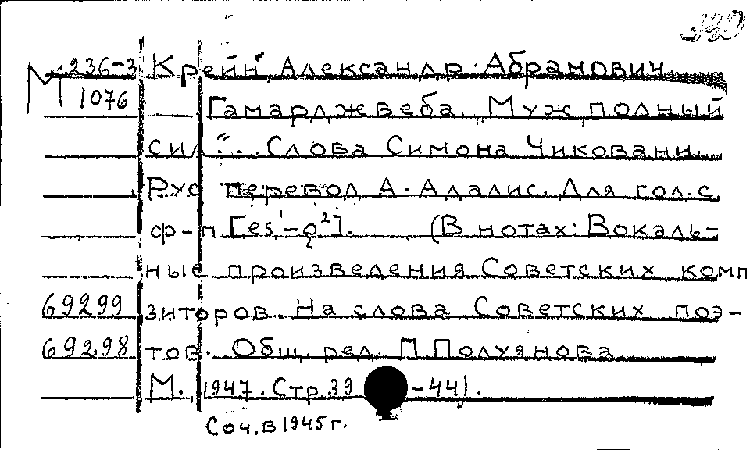 М 236-3 Крейн, Александр Абрамович
1076 Гамарджвеба. „Муж полный
сил“... Слова Симона Чиковани.
Рус перевод А. Адалис. Для гол. с
ф-п [es¹-g²]. (В нотах: Вокаль-
ные произведения Советских комп
69299 зиторов. На слова Советских поэ-
69298 тов. Общ. ред. М Полуянова
М., 1947. Стр. 39 -44).
Соч. в 1945 г.